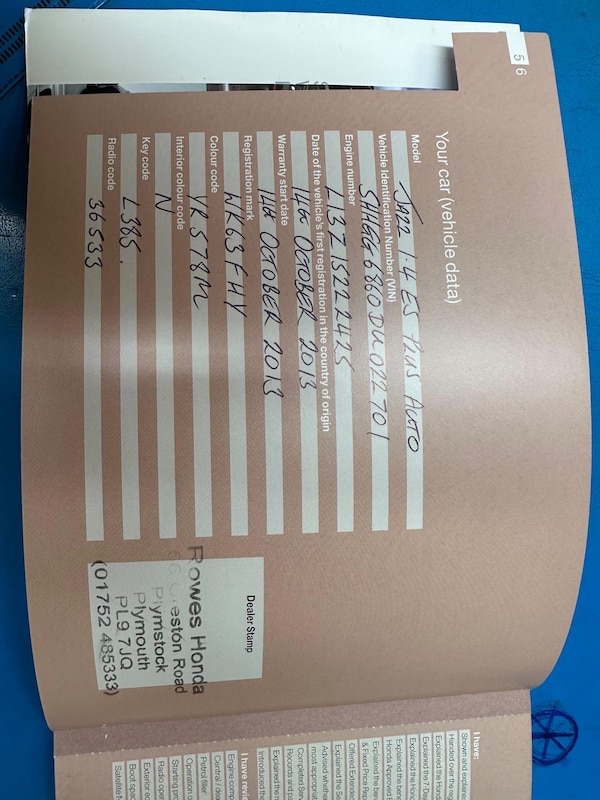 5 6
Your car (vehicle data)
Model
Jazz 1.4 ES PLUS AUTO
Vehicle Identification Number (VIN)
SHHGG6860DU022701
Engine number
L13Z15222425
Date of the vehicle's first registration in the country of origin
14th OCTOBER 2013
Warranty start date
14th OCTOBER 2013
Registration mark
WK63FHV
Colour code
YR578M
Interior colour code
N
Key code
L385.
Radio code
36533
Dealer Stamp
Rowes Honda
Road
Plymstock
Plymouth
PL9 7JQ
(01752 485333)
I have:
Shown and explained
Handed over the
Explained the
Explained the 7-Da
Explained the
Explained the
Honda Approved
Explained the
& Fixed Price
Offered
Explained the
Advised whether
most
Completed
Records and
Explained the
Introduced the
I have
Engine
Central /
Petrol filler
Operation
Starting
Radio
Exterior
Boot
Satellite